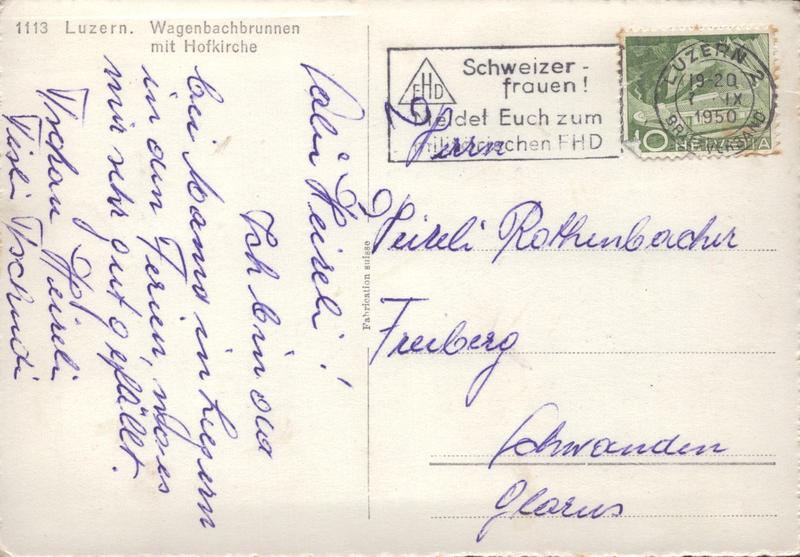 1113 Luzern. Wagenbachbrunnen
mit Hofkirche
Salü Heireli!
Ich bin aus
bei Mama in Luzern
in den Ferien, wo es
mir sehr gut gefällt.
Tschau Heireli
Tschudi
Fabrication suisse
FHD
Schweizer-
frauen!
Meldet Euch zum
militärischen FHD
LUZERN 2
19-20
1. IX
1950
BRIEFVERSAND
10 HELVETIA
Herrn
Heireli Rothenbacher
Freiberg
Schwanden
Glarus